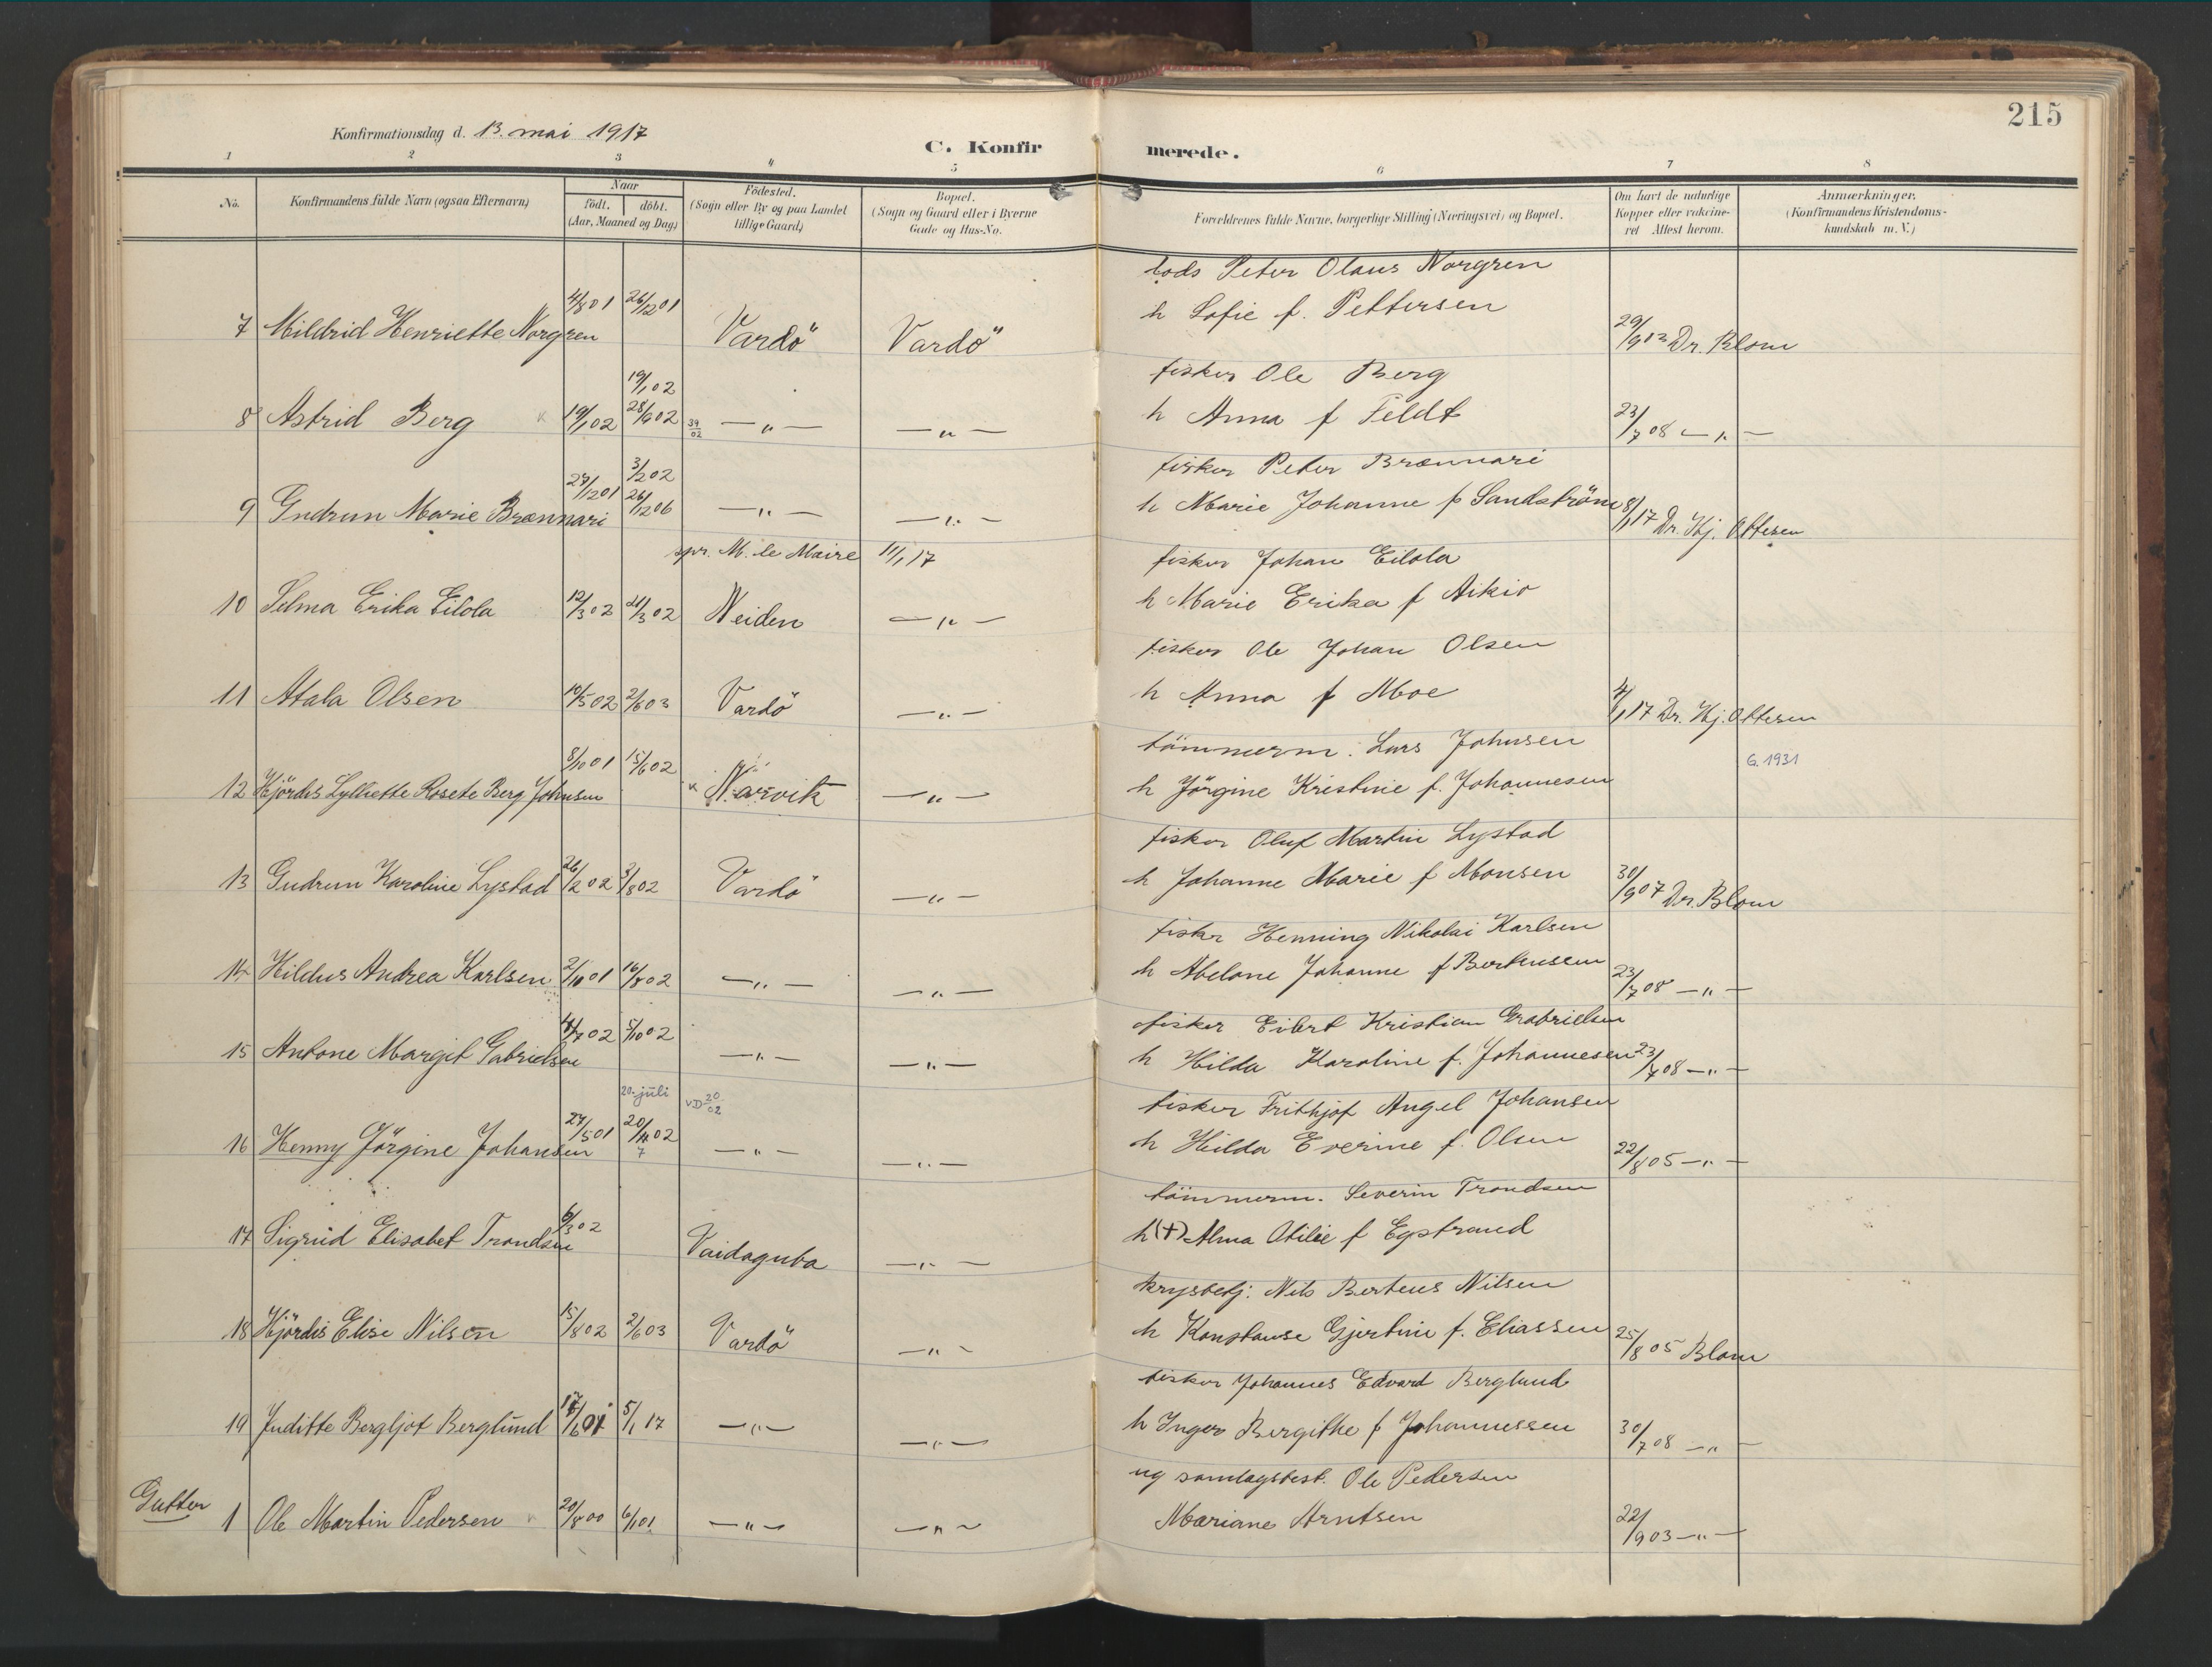 215
Konfirmationsdag d. 13. mai 1917
C. Konfirmerede.
1 2 3 4 5 6 7 8
No.
Konfirmandens fulde Navn (ogsaa Efternavn)
Naar
födt. döbt.
(Aar, Maaned og Dag)
Födested.
(Sogn eller By og paa Landet
tillige Gaard)
Bopæl.
(Sogn og Gaard eller i Byerne
Gade og Hus-No.
Forældrenes fulde Navne, borgerlige Stilling (Næringsvei) og Bopæl.
Om havt de naturlige
Kopper eller vakcine-
ret Attest herom.
Anmærkninger.
(Konfirmandens Kristendoms-
kundskab m. V.)
lods Peter Olaus Norgren
7 Mildrid Henriette Norgren 4/8 01 26/12 01 Vardö Vardö h Sofie f. Pettersen 29/9 13 Dr. Blom
fisker Ole Berg
19/1 02
8 Astrid Berg 19/1 02 28/9 02 39/02 — " — — " — h Anna f Feldt 23/7 08 — " —
fisker Peter Brænnari
3/2 02
9 Gudrun Marie Brænnari 27/12 01 26/12 06 — " — — " — h Marie Johanne f Sandström 8/1 17 Dr. Hj. Ottesen
spr. M. le Maire 11/1 17
fisker Johan Eilola
10 Selma Erika Eilola 12/3 02 21/3 02 Neiden — " — h Marie Erika f Aikio
fisker Ole Johan Olsen
11 Atala Olsen 10/5 02 2/6 03 Vardö — " — h Anna f Moe 4/1 17 Dr. Hj. Ottesen
tömmerm. Lars Johnsen
G. 1931
12 Hjördis Lylliette Rosete Berg Johnsen 8/10 01 15/6 02 x Narvik — " — h Jörgine Kristine f. Johannesen
fisker Oluf Martin Lystad
13 Gudrun Karoline Lystad 26/2 02 3/8 02 Vardö — " — h Johanne Marie f Monsen 30/9 07 Dr. Blom
fisker Henning Nikolai Karlsen
14 Hildus Andrea Karlsen 2/10 01 16/8 02 — " — — " — h Abelone Johanne f Berteussen 23/7 08 — " —
fisker Eibert Kristian Grabrielsen
15 Antone Margit Gabrielsen 4/7 02 5/10 02 — " — — " — h Hilda Karoline f. Johannesen 23/7 08 — " —
20. juli VD 20/02
fisker Frithjof Angel Johansen
16 Henny Jörgine Johansen 27/5 01 20/11 02 7 — " — — " — h Hilda Everine f. Olsen 22/8 05 — " —
tömmerm. Severin Trondsen
17 Sigrid Elisabet Trondsen 6/3 02 Vaidaguba — " — h (+) Alma Otilie f Eystrand
krysbetj. Nils Berteus Nilsen
18 Hjördis Elise Nilsen 15/8 02 2/6 03 Vardö — " — h Konstanse Gjertine f. Eliassen 25/8 05 Blom
fisker Johannes Edvard Berglund
19 Juditte Bergljot Berglund 17/6 01 5/1 17 — " — — " — h Inger Bergithe f Johannessen 30/7 08 — " —
Gutter
ug samlagsbest. Ole Pedersen
1 Ole Martin Pedersen 20/8 00 6/1 01 — " — — " — Mariane Arntsen 22/9 03 — " —